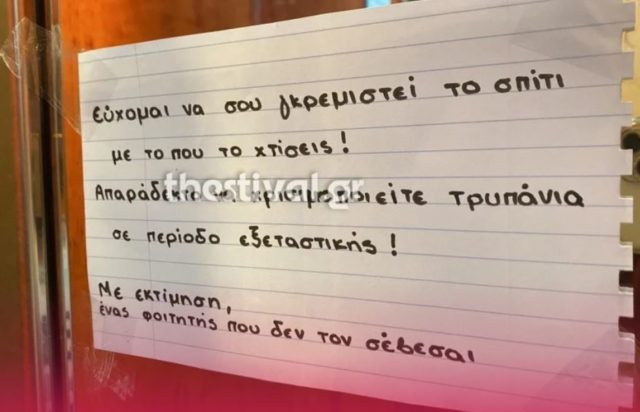 Εύχομαι να σου γκρεμιστεί το σπίτι
με το που το χτίσεις!
Απαράδεκτο να χρησιμοποιείτε τρυπάνια
thestival.gr
σε περίοδο εξεταστικής!
Με εκτίμηση,
ένας φοιτητής που δεν τον σέβεσαι